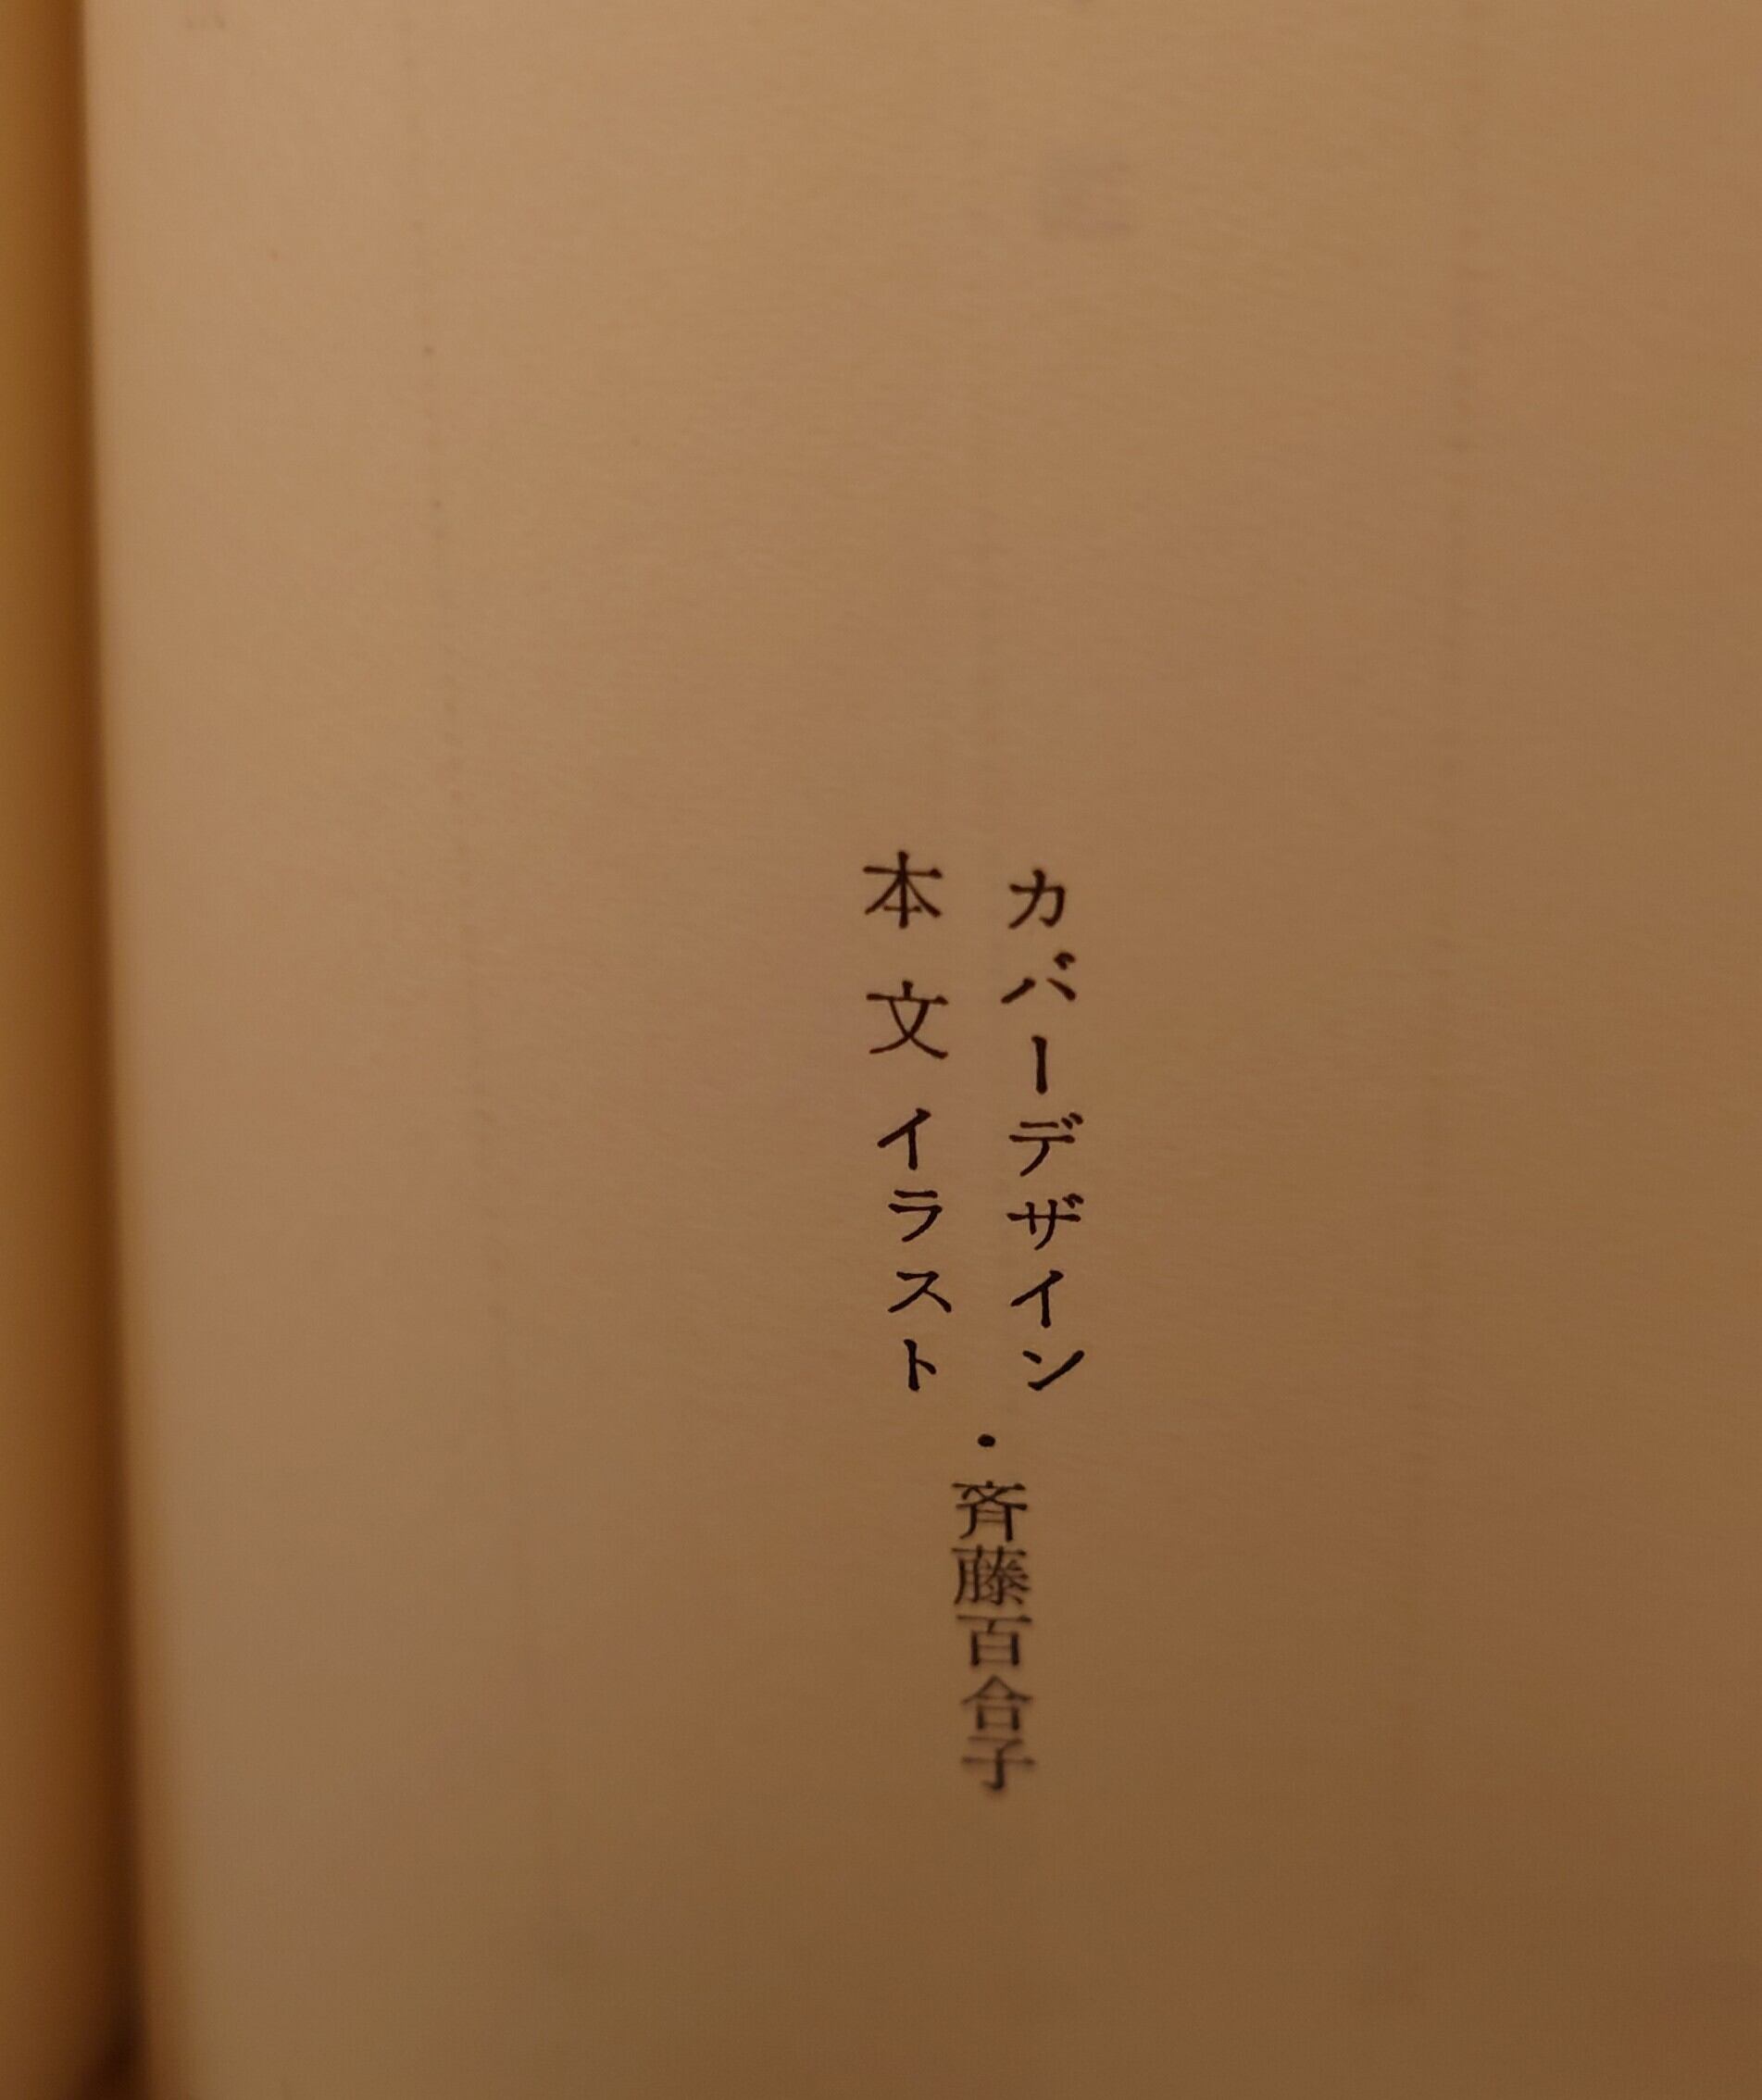 カバーデザイン
本文イラスト
・斉藤百合子